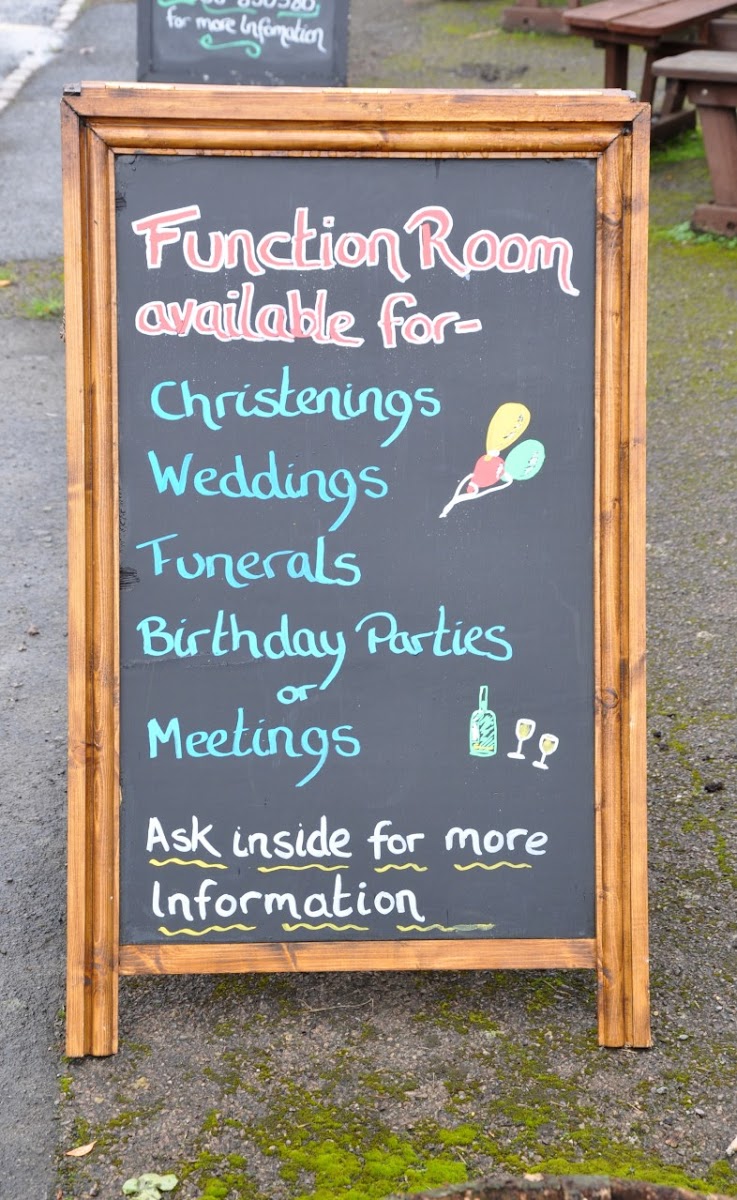 for more Infomation
Function Room
available for-
Christenings
Weddings
Funerals
Birthday Parties
or
Meetings
Ask inside for more
Information